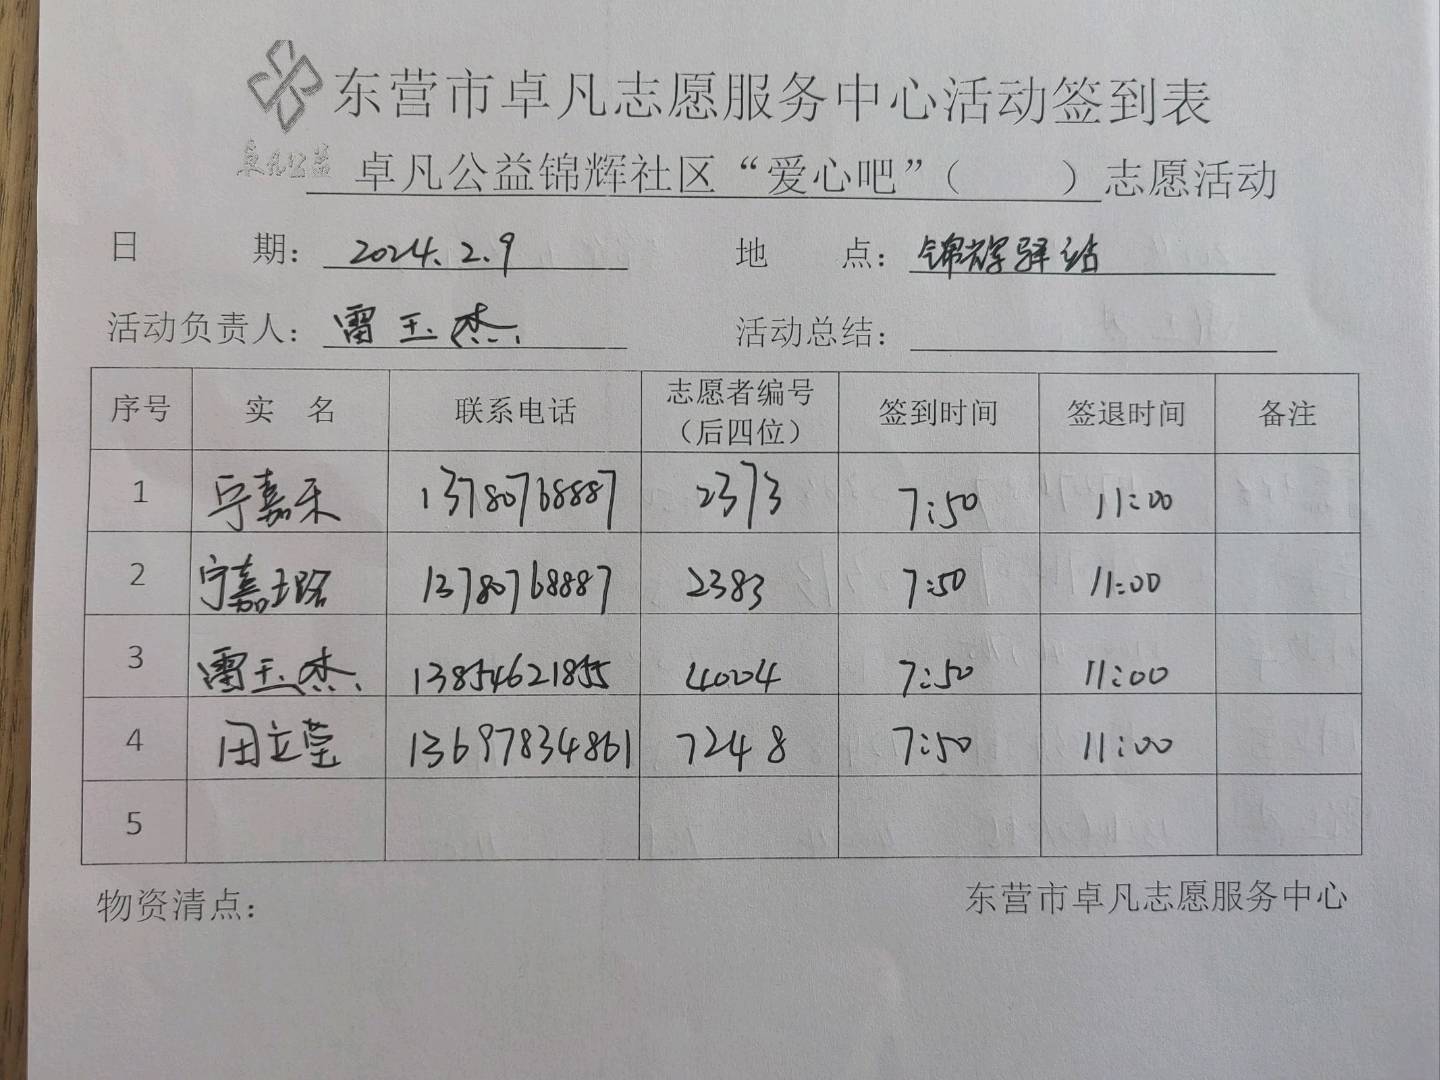 东营市卓凡志愿服务中心活动签到表
卓凡公益
卓凡公益锦辉社区“爱心吧”（ ）志愿活动
日 期： 2024.2.9 地 点： 锦辉驿站
活动负责人： 雷玉杰 活动总结：
序号 实 名 联系电话 志愿者编号（后四位） 签到时间 签退时间 备注
1 宁嘉禾 13780768887 2373 7:50 11:00
2 宁嘉璐 13780768887 2383 7:50 11:00
3 雷玉杰 13854621855 4004 7:50 11:00
4 田立莹 13697834861 7248 7:50 11:00
5
物资清点： 东营市卓凡志愿服务中心